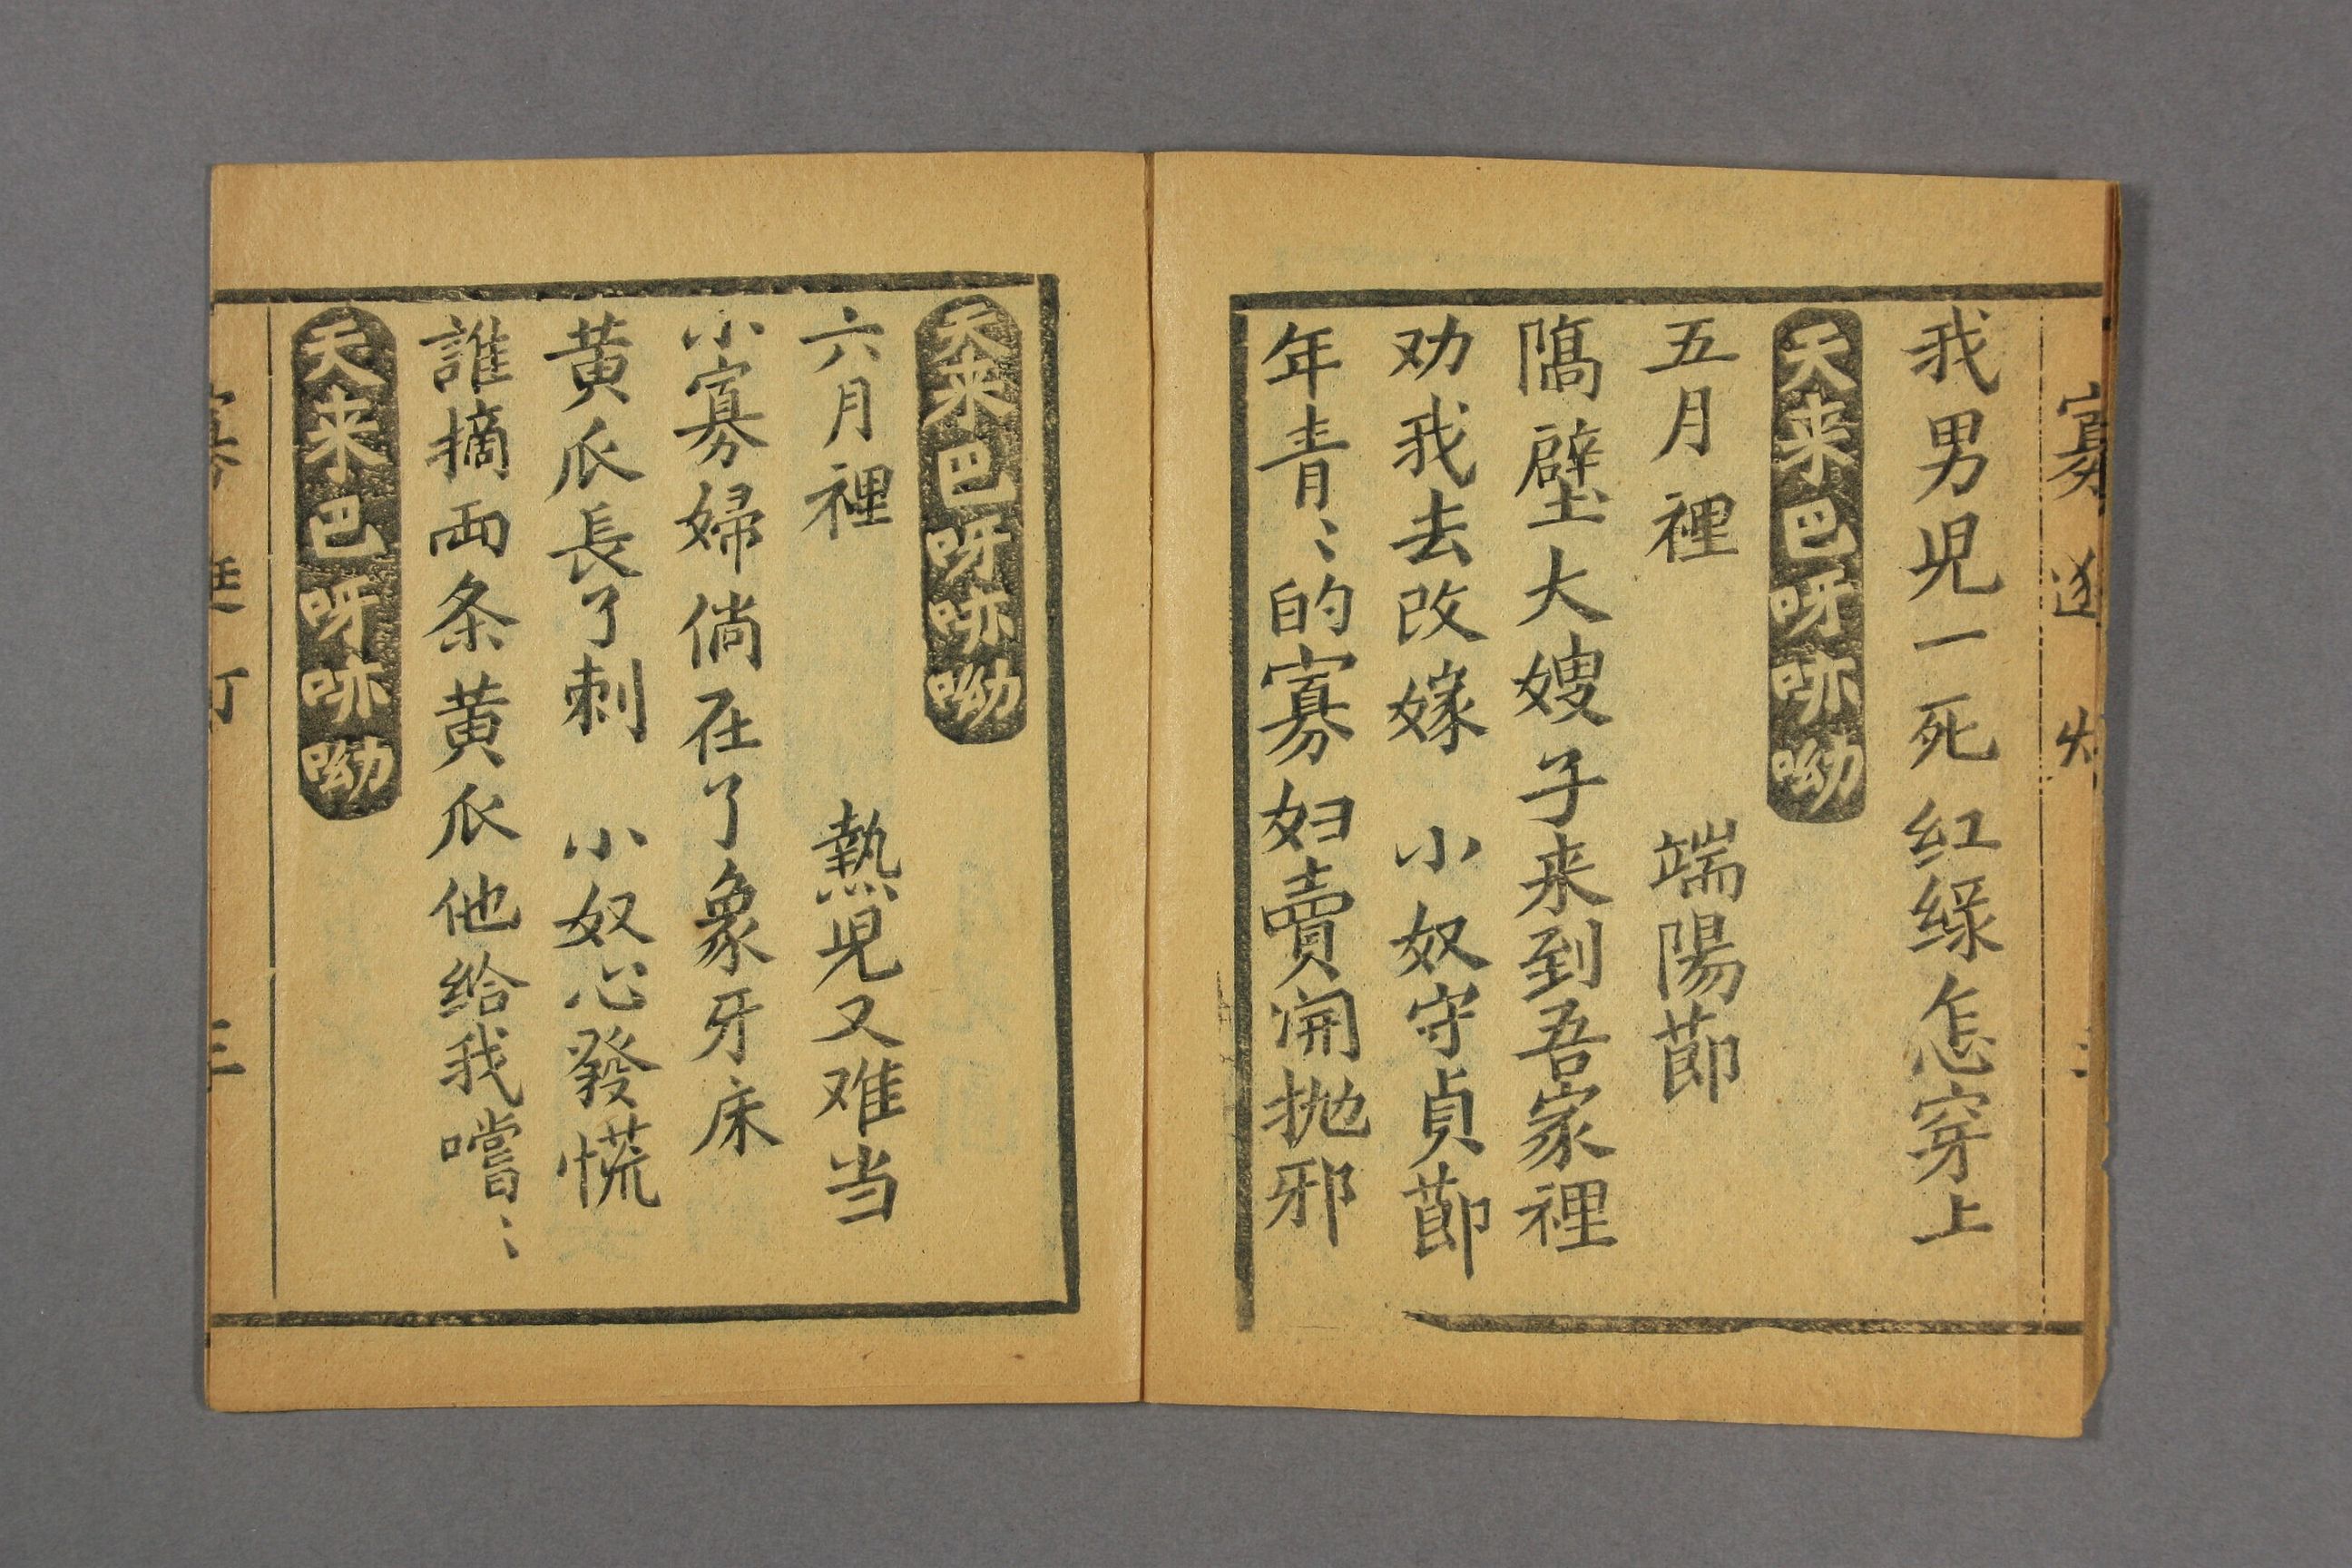 寡
我男児一死红緑怎穿上
天来巴呀㖿呦
五月裡　端陽莭
隔壁大嫂子来到吾家裡
劝我去改嫁　小奴守貞莭
年青〻的寡妇賣開抛邪
天来巴呀㖿呦
六月裡　熱児又难当
小寡婦倘在了象牙床
黄瓜長了刺　小奴心發慌
誰摘両条黄瓜他给我嚐〻
天来巴呀㖿呦
三